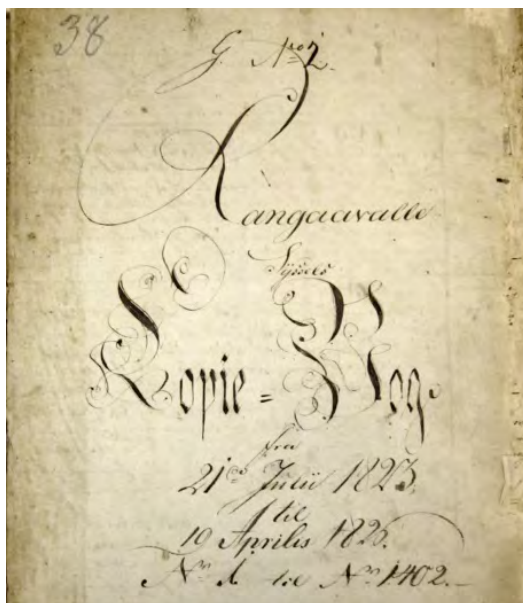 38
G. No 2.
Rangaavalle
Sysses
Kopie = Bog.
fra
21de Julii 1823.
til
10 Aprilis 1826.
No 1. til No 1402.